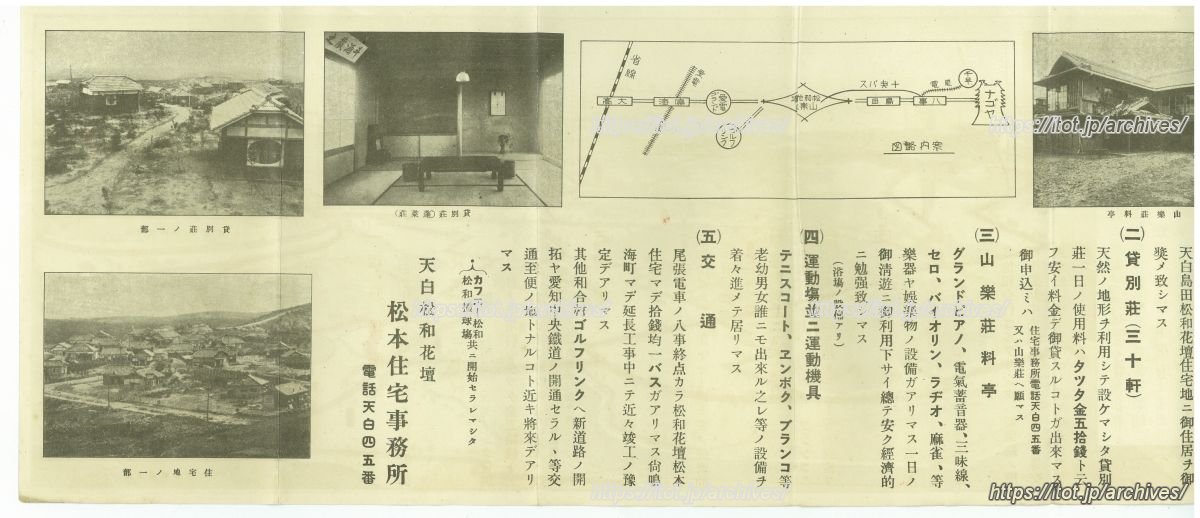 天白島田松和花壇住宅地ニ御住居ヲ御
奬メ致シマス
(二)貸別莊(三十軒)
天然ノ地形ヲ利用シテ設ケマシタ貸別
莊一日ノ使用料ハタツタ金五拾錢トテ
フ安イ料金デ御貸スルコトガ出來マス
御申込ミハ 住宅事務所電話天白四五番
又ハ山樂莊ヘ願マス
(三)山樂莊料亭
グランドピアノ、電氣蓄音器、三味線、
セロ、バイオリン、ラヂオ、麻雀、等
樂器ヤ娯樂物ノ設備ガアリマス一日ノ
御淸遊ニ御利用下サイ總テ安ク經濟的
ニ勉强致シマス
(浴場ノ設備アリ)
(四)運動場並ニ運動機具
テニスコート、ヱンボク、ブランコ等
老幼男女誰ニモ出來ル之レ等ノ設備ヲ
着々進メテ居リマス
(五)交通
尾張電車ノ八事終点カラ松和花壇松本
住宅マデ拾錢均一バスガアリマス尙鳴
海町マデ延長工事中ニテ近々竣工ノ豫
定デアリマス
其他和合村ゴルフリンクヘ新道路ノ開
拓ヤ愛知中央鐵道ノ開通セラルヽ等交
通至便ノ地トナルコト近キ將來デアリ
マス
カフエ松和
松和撞球場
共ニ開始セラレマシタ
天白松和花壇
松本住宅事務所
電話天白四五番
山樂莊料亭
案内畧図
ナゴヤ
千早
尾電
八事
島田
十夫バス
松和花壇
山樂莊
愛電
鳴海
大高
省線
貸別莊(蓬萊莊)
貸別莊ノ一部
住宅地ノ一部
https://itot.jp/archives/
https://itot.jp/archives/
https://itot.jp/archives/
https://itot.jp/archives/